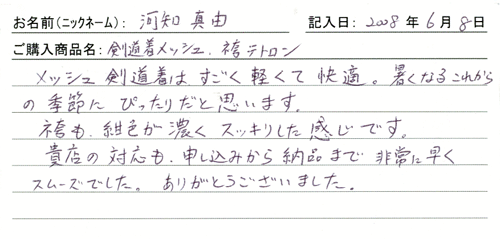 お名前(ニックネーム): 河知 真由 記入日: 2008 年 6 月 8 日
ご購入商品名: 剣道着メッシュ. 袴テトロン
メッシュ 剣道着は すごく 軽くて 快適。暑くなる これから
の 季節に ぴったりだと 思います。
袴も、紺色が 濃く スッキリした 感じです。
貴店の 対応も、申し込みから 納品まで 非常に 早く
スムーズでした。 ありがとうございました。